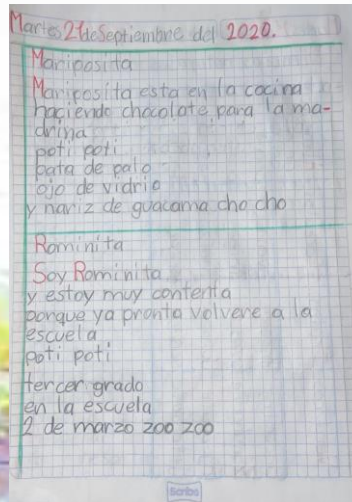 Martes 21 de Septiembre del 2020.
Mariposita
Mariposita esta en la cocina
haciendo chocolate para la ma-
drina
poti poti
pata de palo
ojo de vidrio
y nariz de guacama cho cho
Rominita
Soy Rominita
y estoy muy contenta
porque ya pronto volvere a la
escuela
poti poti
tercer grado
en la escuela
2 de marzo zoo zoo
Scribe